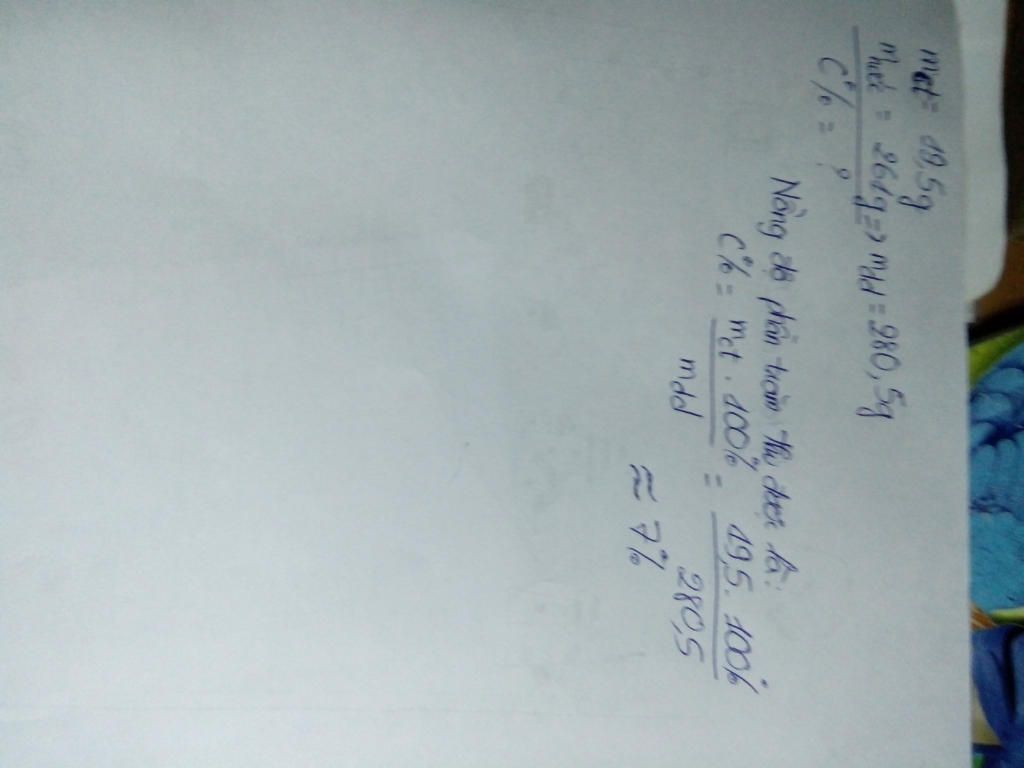 mct = 19,5g
mnước = 261g => mdd = 280,5g
C% = ?
Nồng độ phần trăm thu được là:
C% = mct . 100% / mdd = 19,5 . 100% / 280,5
≈ 7%